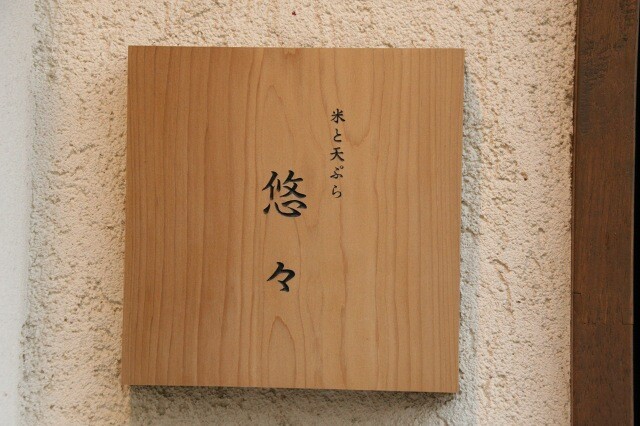 米と天ぷら
悠々